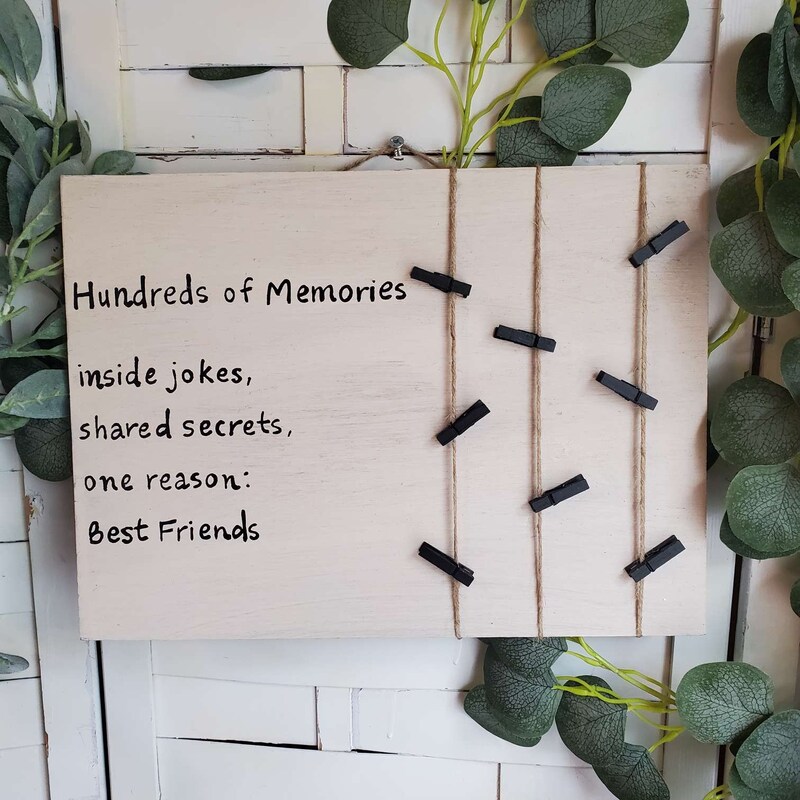 Hundreds of Memories
inside jokes,
shared secrets,
one reason:
Best Friends